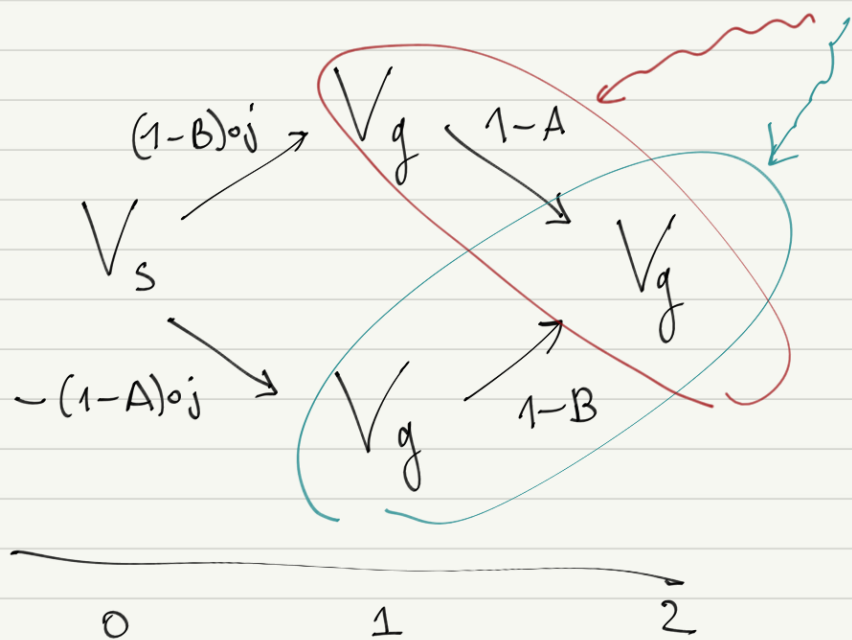 (1-B)∘j
V_g
1-A
V_s
V_g
-(1-A)∘j
V_g
1-B
0 1 2